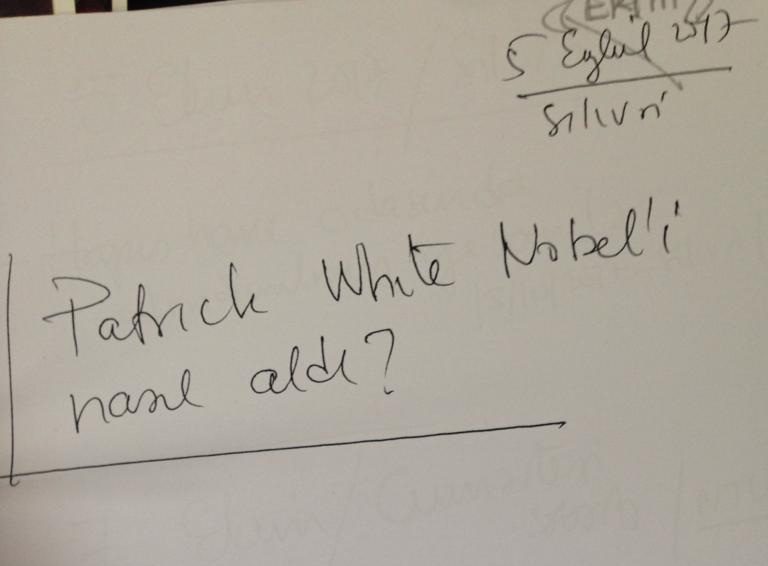 EKİM
5 Eylül 2017
Silivri
Patrick White Nobel'i
nasıl aldı?